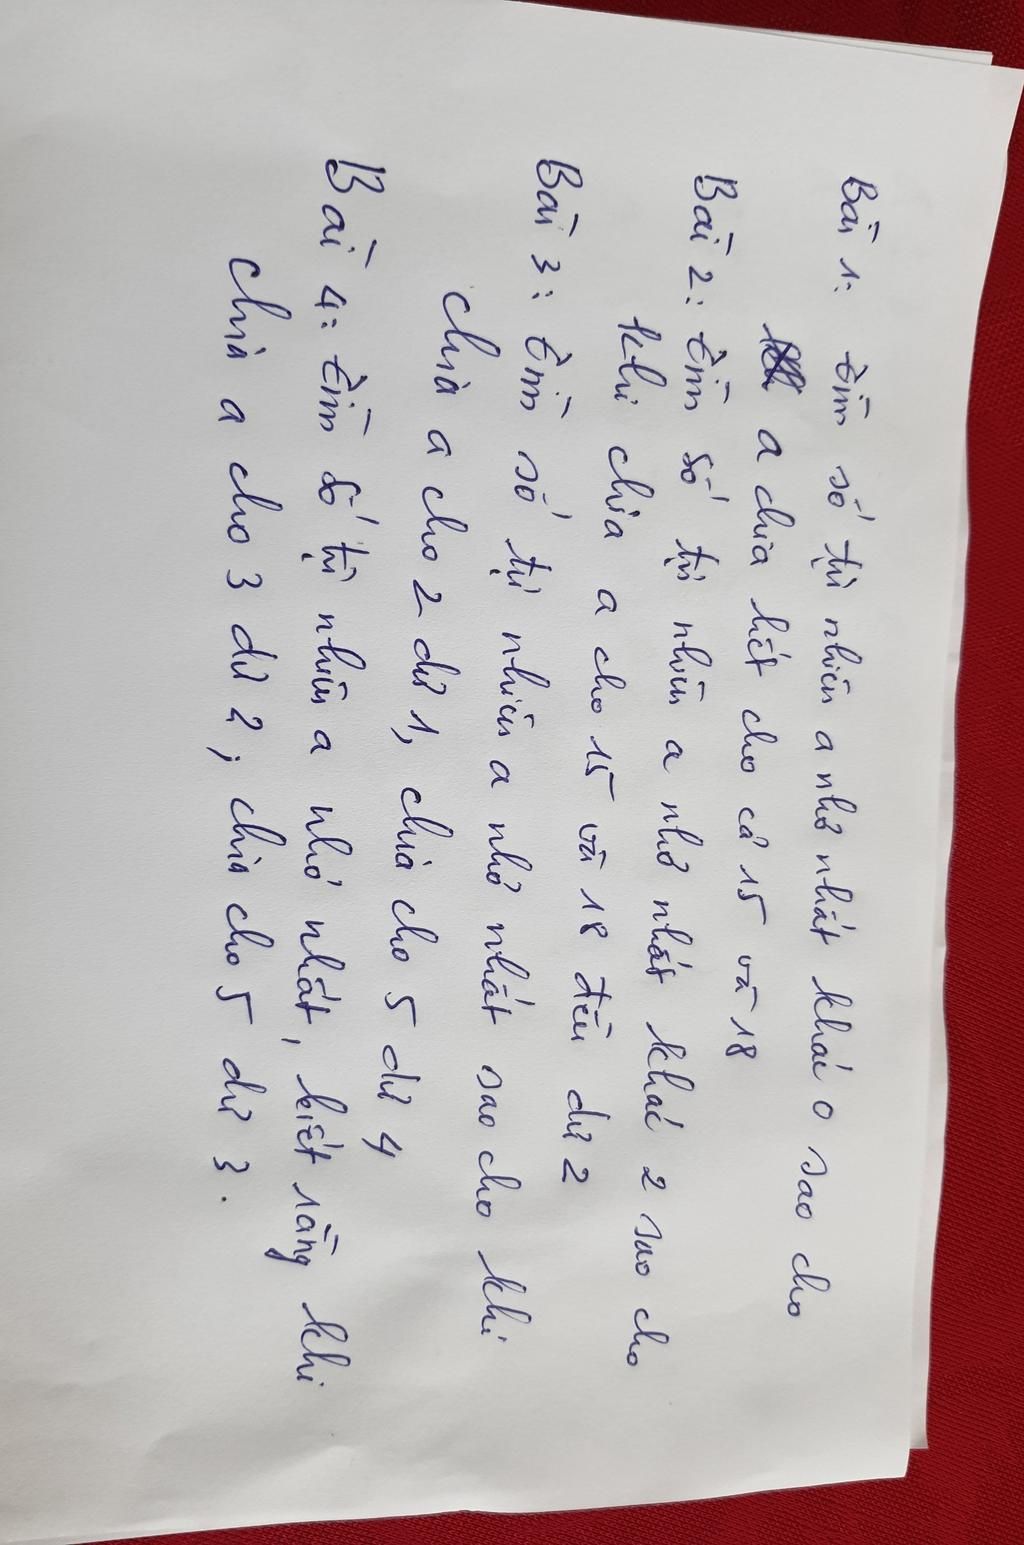 Bài 1: tìm số tự nhiên a nhỏ nhất khác 0 sao cho
a chia hết cho cả 15 và 18
Bài 2: tìm số tự nhiên a nhỏ nhất khác 2 sao cho
khi chia a cho 15 và 18 đều dư 2
Bài 3: tìm số tự nhiên a nhỏ nhất sao cho khi
chia a cho 2 dư 1, chia cho 5 dư 4
Bài 4: tìm số tự nhiên a nhỏ nhất, biết rằng khi
chia a cho 3 dư 2; chia cho 5 dư 3.